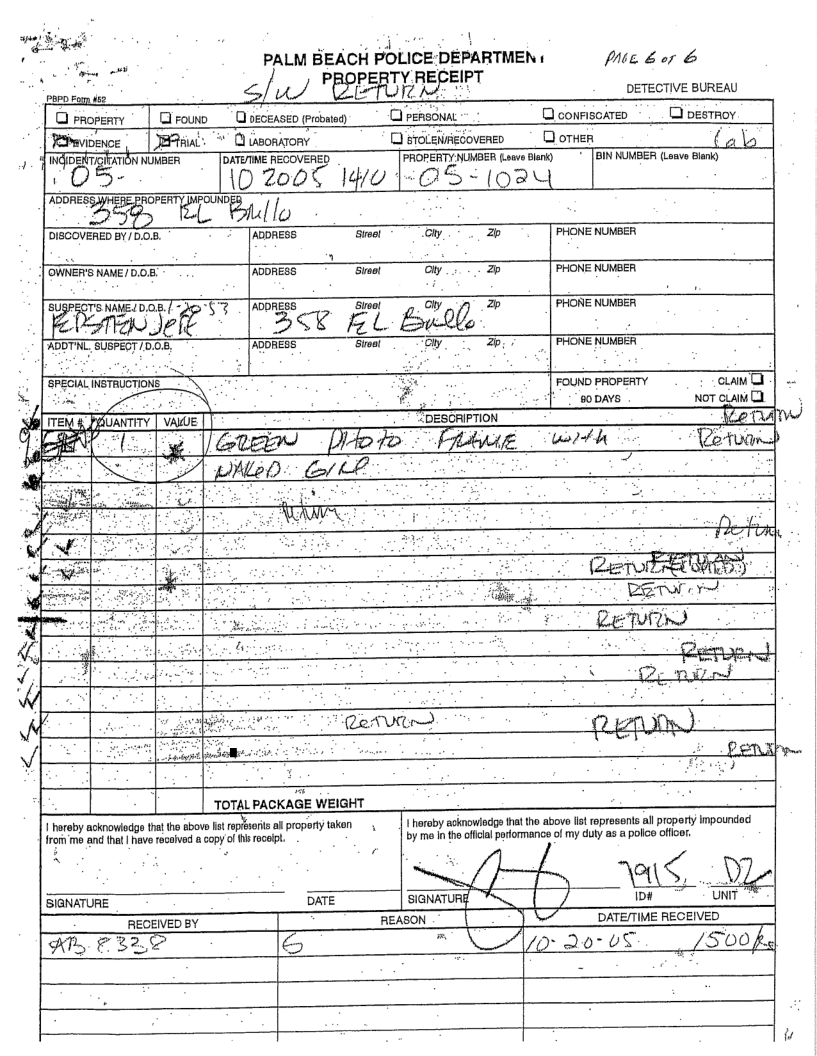 PALM BEACH POLICE DEPARTMENT PAGE 6 OF 6
PROPERTY RECEIPT
S/W RETURN
DETECTIVE BUREAU
PBPD Form #52
PROPERTY FOUND DECEASED (Probated) PERSONAL CONFISCATED DESTROY
EVIDENCE TRIAL LABORATORY STOLEN/RECOVERED OTHER lab
INCIDENT/CITATION NUMBER DATE/TIME RECOVERED PROPERTY NUMBER (Leave Blank) BIN NUMBER (Leave Blank)
05- 10 2005 1410 05-1024
ADDRESS WHERE PROPERTY IMPOUNDED
358 EL Brillo
DISCOVERED BY / D.O.B. ADDRESS Street City Zip PHONE NUMBER
OWNER'S NAME / D.O.B. ADDRESS Street City Zip PHONE NUMBER
SUSPECT'S NAME / D.O.B. 1-20-53 ADDRESS Street City Zip PHONE NUMBER
EPSTEIN Jeff 358 EL Brillo
ADDT'NL. SUSPECT / D.O.B. ADDRESS Street City Zip PHONE NUMBER
SPECIAL INSTRUCTIONS FOUND PROPERTY CLAIM
90 DAYS NOT CLAIM
Return
ITEM # QUANTITY VALUE DESCRIPTION
1 GREEN PHOTO FRAME with Return
NAKED GIRL
Return
RETURN
RETURN
RETURN
RETURN
RETURN
RETURN RETURN
RETURN
TOTAL PACKAGE WEIGHT
I hereby acknowledge that the above list represents all property taken
from me and that I have received a copy of this receipt.
I hereby acknowledge that the above list represents all property impounded
by me in the official performance of my duty as a police officer.
7915 D2
SIGNATURE DATE SIGNATURE ID# UNIT
RECEIVED BY REASON DATE/TIME RECEIVED
AB 8338 6 10-20-05 1500